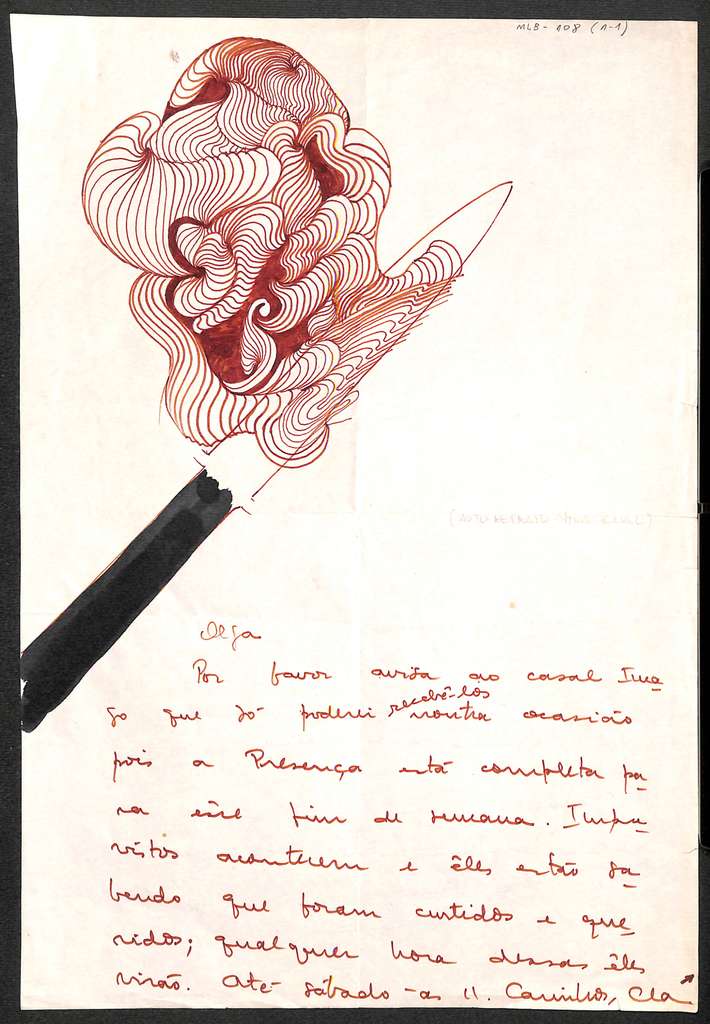 MLB - 108 (A-1)
(AUTO RETRATO
Olga
Por favor avisa ao casal Ima-
go que só poderei recebê-los noutra ocasião
pois a Presença está completa pa-
ra êsse fim de semana. Impre-
vistos acontecem e êles estão sa-
bendo que foram curtidos e que-
ridos; qualquer hora dessas êles
virão. Até sábado - as 11. Carinhos, Cla